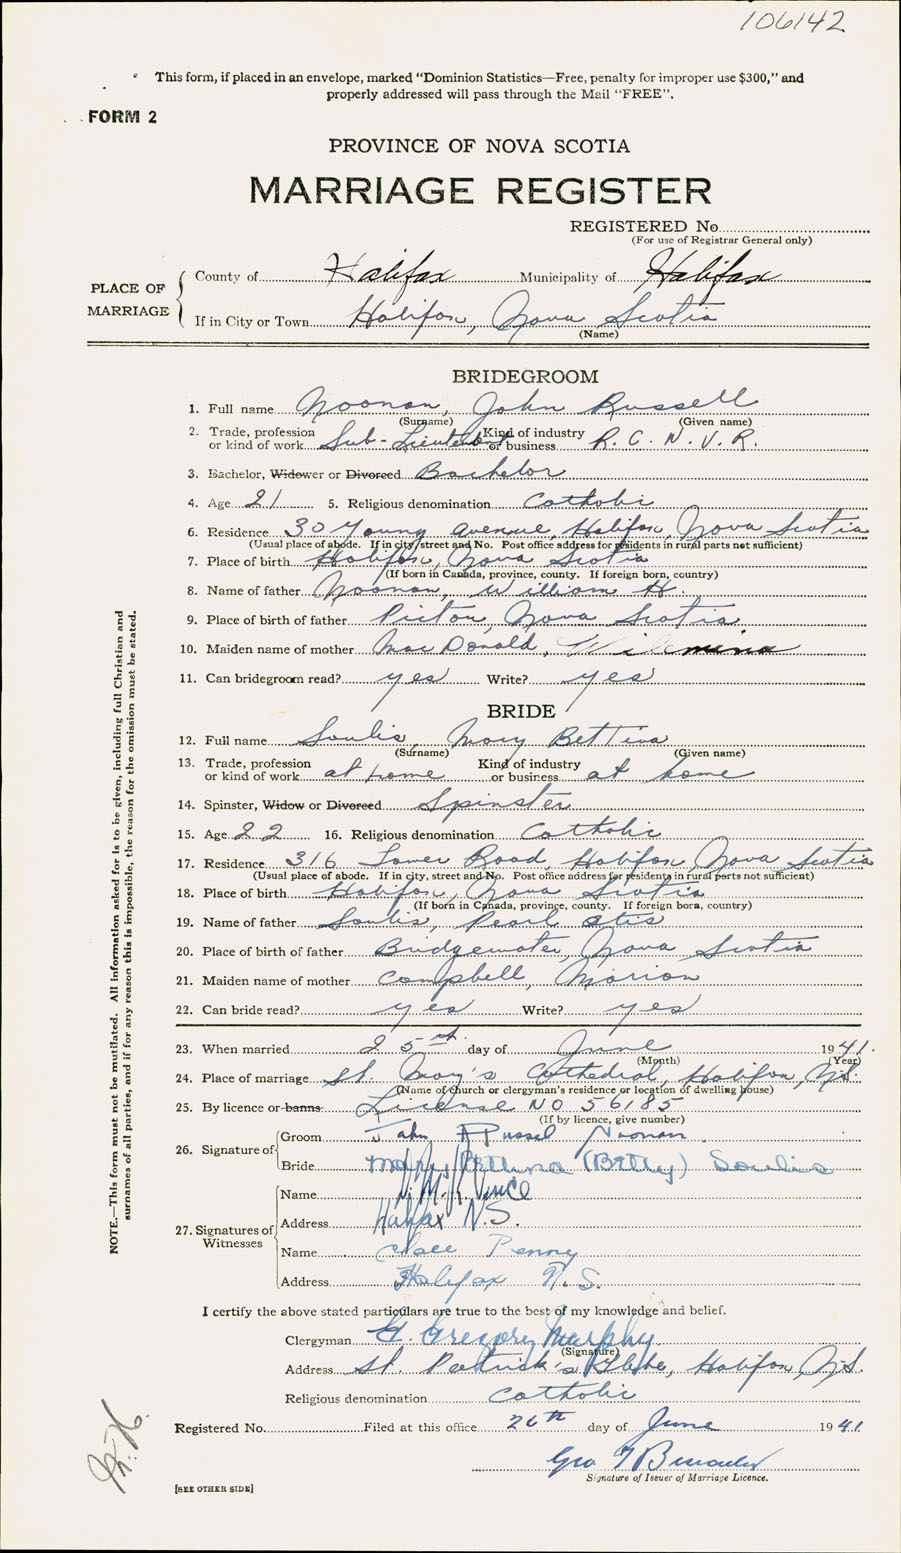 106142
This form, if placed in an envelope, marked "Dominion Statistics—Free, penalty for improper use $300," and
properly addressed will pass through the Mail "FREE".
FORM 2
PROVINCE OF NOVA SCOTIA
MARRIAGE REGISTER
REGISTERED No.
(For use of Registrar General only)
PLACE OF MARRIAGE
County of Halifax Municipality of Halifax
If in City or Town Halifax, Nova Scotia
(Name)
BRIDEGROOM
1. Full name Noonan, John Russell
(Surname) (Given name)
2. Trade, profession or kind of work Sub-Lieutenant Kind of industry or business R. C. N. V. R.
3. Bachelor, Widower or Divorced Bachelor
4. Age 21 5. Religious denomination Catholic
6. Residence 30 Young Avenue, Halifax, Nova Scotia
(Usual place of abode. If in city, street and No. Post office address for residents in rural parts not sufficient)
7. Place of birth Halifax, Nova Scotia
(If born in Canada, province, county. If foreign born, country)
8. Name of father Noonan, William H.
9. Place of birth of father Pictou, Nova Scotia
10. Maiden name of mother MacDonald, Wilemina
11. Can bridegroom read? yes Write? yes
BRIDE
12. Full name Soulis, Mary Bettina
(Surname) (Given name)
13. Trade, profession or kind of work at home Kind of industry or business at home
14. Spinster, Widow or Divorced Spinster
15. Age 22 16. Religious denomination Catholic
17. Residence 316 Tower Road, Halifax, Nova Scotia
(Usual place of abode. If in city, street and No. Post office address for residents in rural parts not sufficient)
18. Place of birth Halifax, Nova Scotia
(If born in Canada, province, county. If foreign born, country)
19. Name of father Soulis, Pearl Otis
20. Place of birth of father Bridgewater, Nova Scotia
21. Maiden name of mother Campbell, Marion
22. Can bride read? yes Write? yes
23. When married 25st day of June 1941.
(Month) (Year)
24. Place of marriage St. Mary's Cathedral, Halifax, N.S.
(Name of church or clergyman's residence or location of dwelling house)
25. By licence or banns License No 56185
(If by licence, give number)
26. Signature of
Groom John Russel Noonan
Bride Mary Bettina (Betty) Soulis
27. Signatures of Witnesses
Name Vince
Address Halifax N.S.
Name Penny
Address Halifax N.S.
I certify the above stated particulars are true to the best of my knowledge and belief.
Clergyman G. Gregory Murphy
(Signature)
Address St. Patrick's Glebe, Halifax, N.S.
Religious denomination Catholic
Registered No. Filed at this office 26th day of June 1941
Geo
Signature of Issuer of Marriage Licence.
[SEE OTHER SIDE]
NOTE.—This form must not be mutilated. All information asked for is to be given, including full Christian and
surnames of all parties, and if for any reason this is impossible, the reason for the omission must be stated.